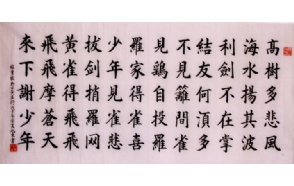 髙樹多悲風
海水揚其波
利劍不在掌
結友何湏多
不見籬間雀
見鷂自投羅
羅家得雀喜
少年見雀悲
拔劍捎羅網
黃雀得飛飛
飛飛摩蒼天
來下謝少年